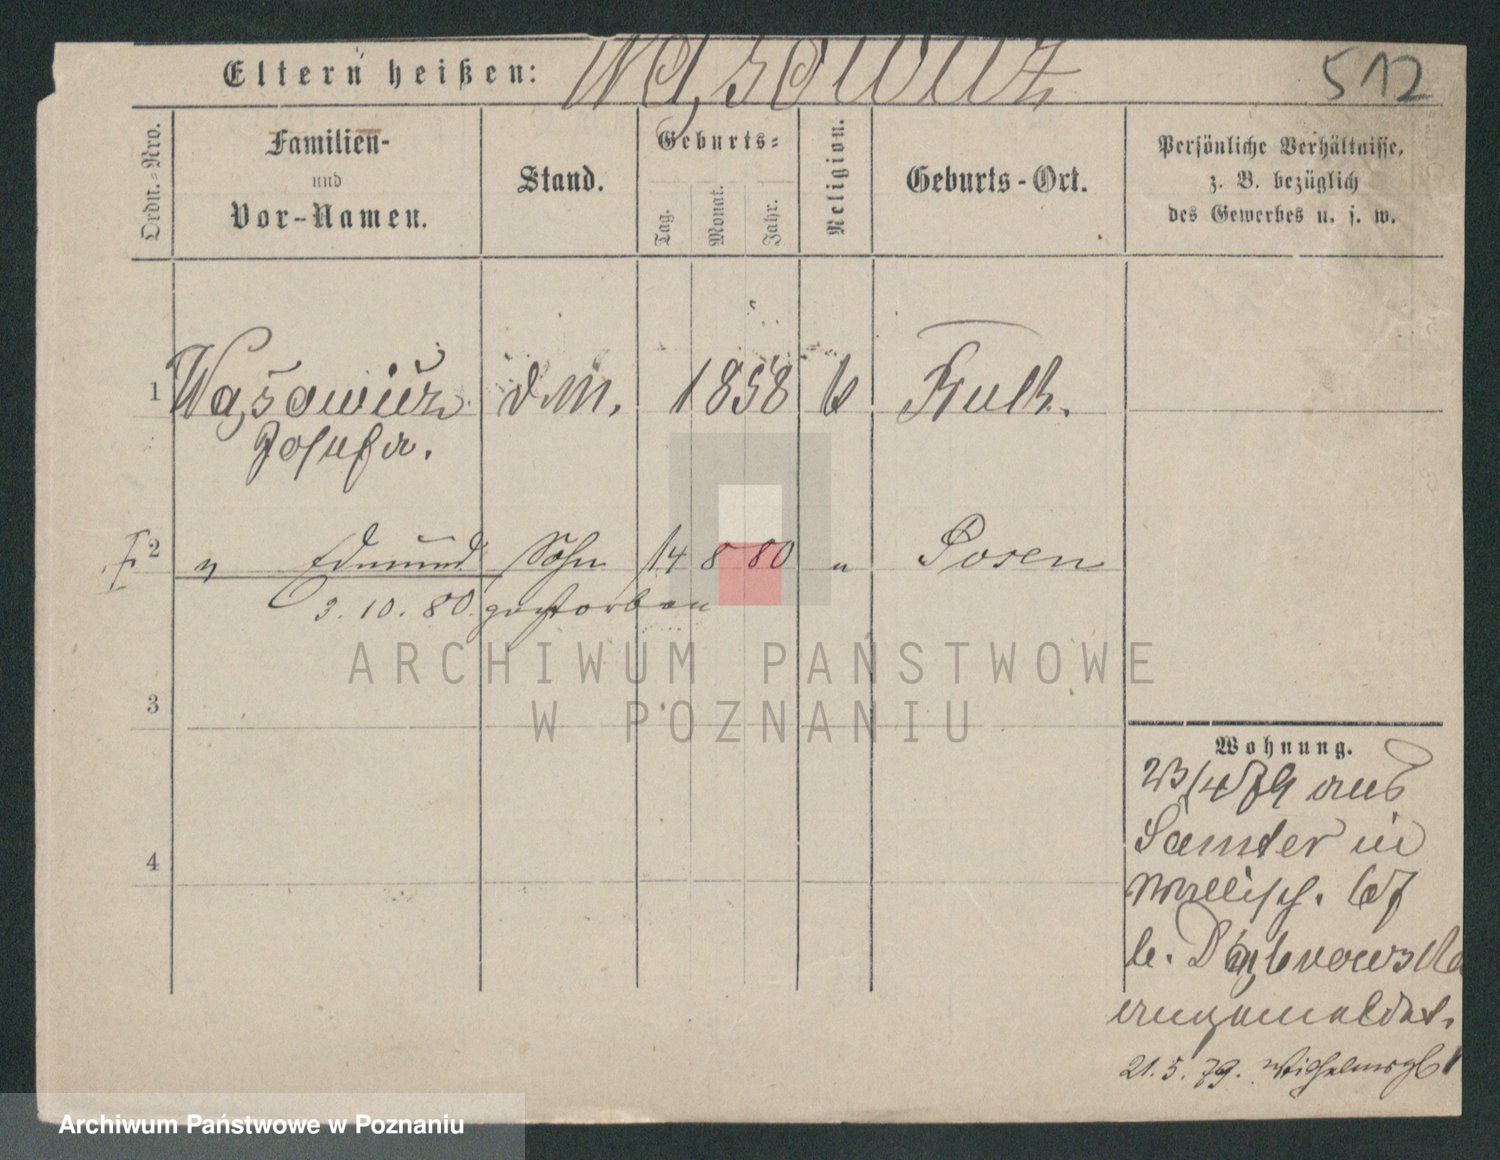 Eltern heißen: Wąsowicz 512
Ordn.=Nro.
Familien-
und
Vor-Namen.
Stand.
Geburts=
Tag.
Monat.
Jahr.
Religion.
Geburts-Ort.
Persönliche Verhältnisse,
z. B. bezüglich
des Gewerbes u. s. w.
1 Wąsowicz d. M. 1858 k
Josefa.
2 " Edmund Sohn 14 8 80 " Posen
3. 10. 80. gestorben
ARCHIWUM PAŃSTWOWE
W POZNANIU
3
4
Wohnung.
23/4 79 aus
Samter in
Wallisch. 67
b. Dąbrowska
angemeldet.
21. 5. 79.
Archiwum Państwowe w Poznaniu